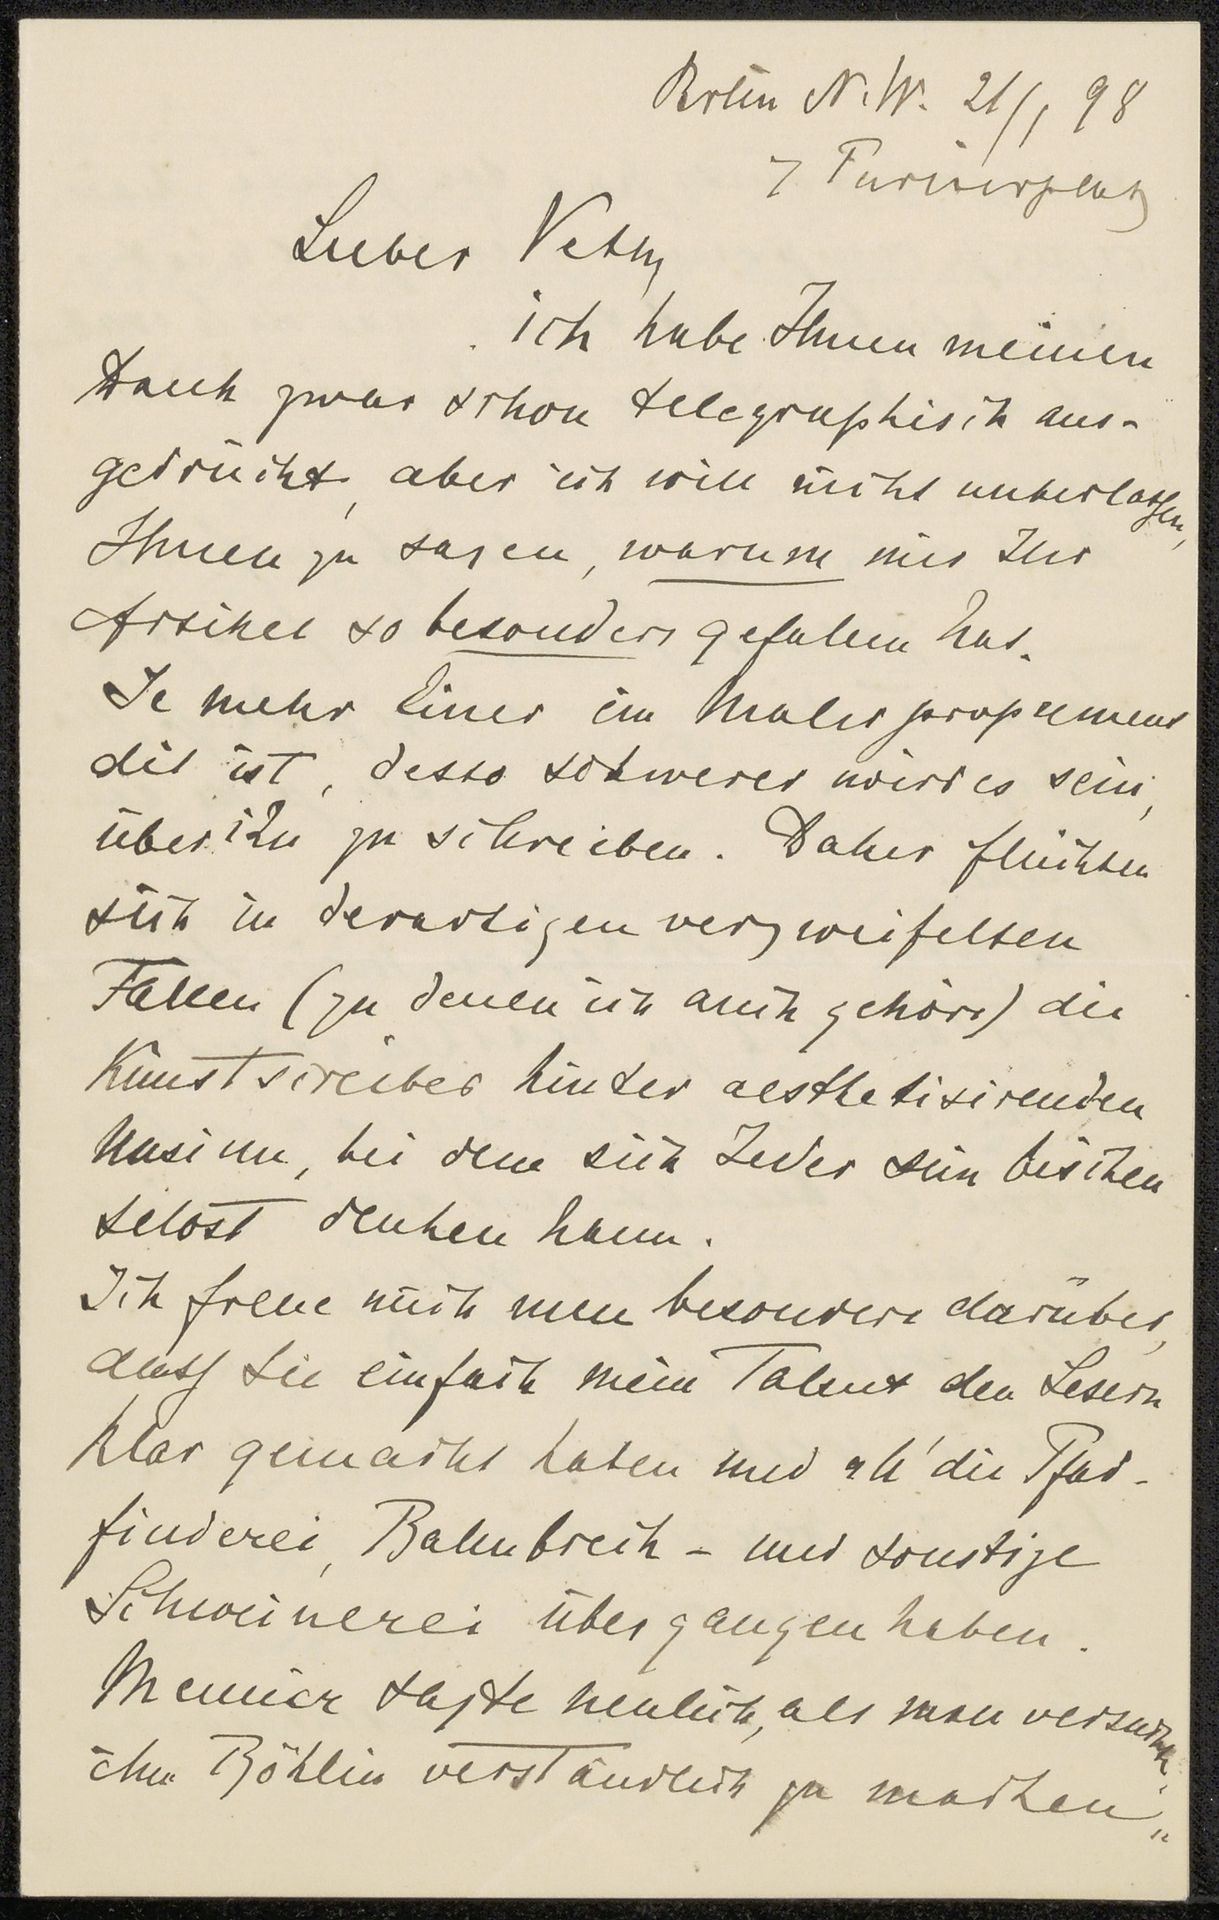 Berlin N.W. 21/1 98
7 Pariserplatz
Lieber Veth,
ich habe Ihnen meinen
Dank zwar schon telegraphisch aus-
gedrückt, aber ich will nicht unterlassen,
Ihnen zu sagen, warum mir Ihr
Artikel so besonders gefallen hat.
Je mehr Einer ein Maler proprement
dit ist, desto schwerer wird es sein,
über ihn zu schreiben. Daher flüchten
sich in derartigen verzweifelten
Fällen (zu denen ich auch gehöre) die
Kunstscreiber hinter aesthetisirenden
Unsinn, bei dem sich Jeder sein bischen
selbst denken kann.
Ich freue mich nun besonders darüber,
dass Sie einfach mein Talent den Lesern
klar gemacht haben und all' die Pfad-
finderei, Bahnbrech- und sonstige
Schweinerei übergangen haben.
Meunier sagte neulich, als man versuchte,
ihm Böklin verständlich zu machen „